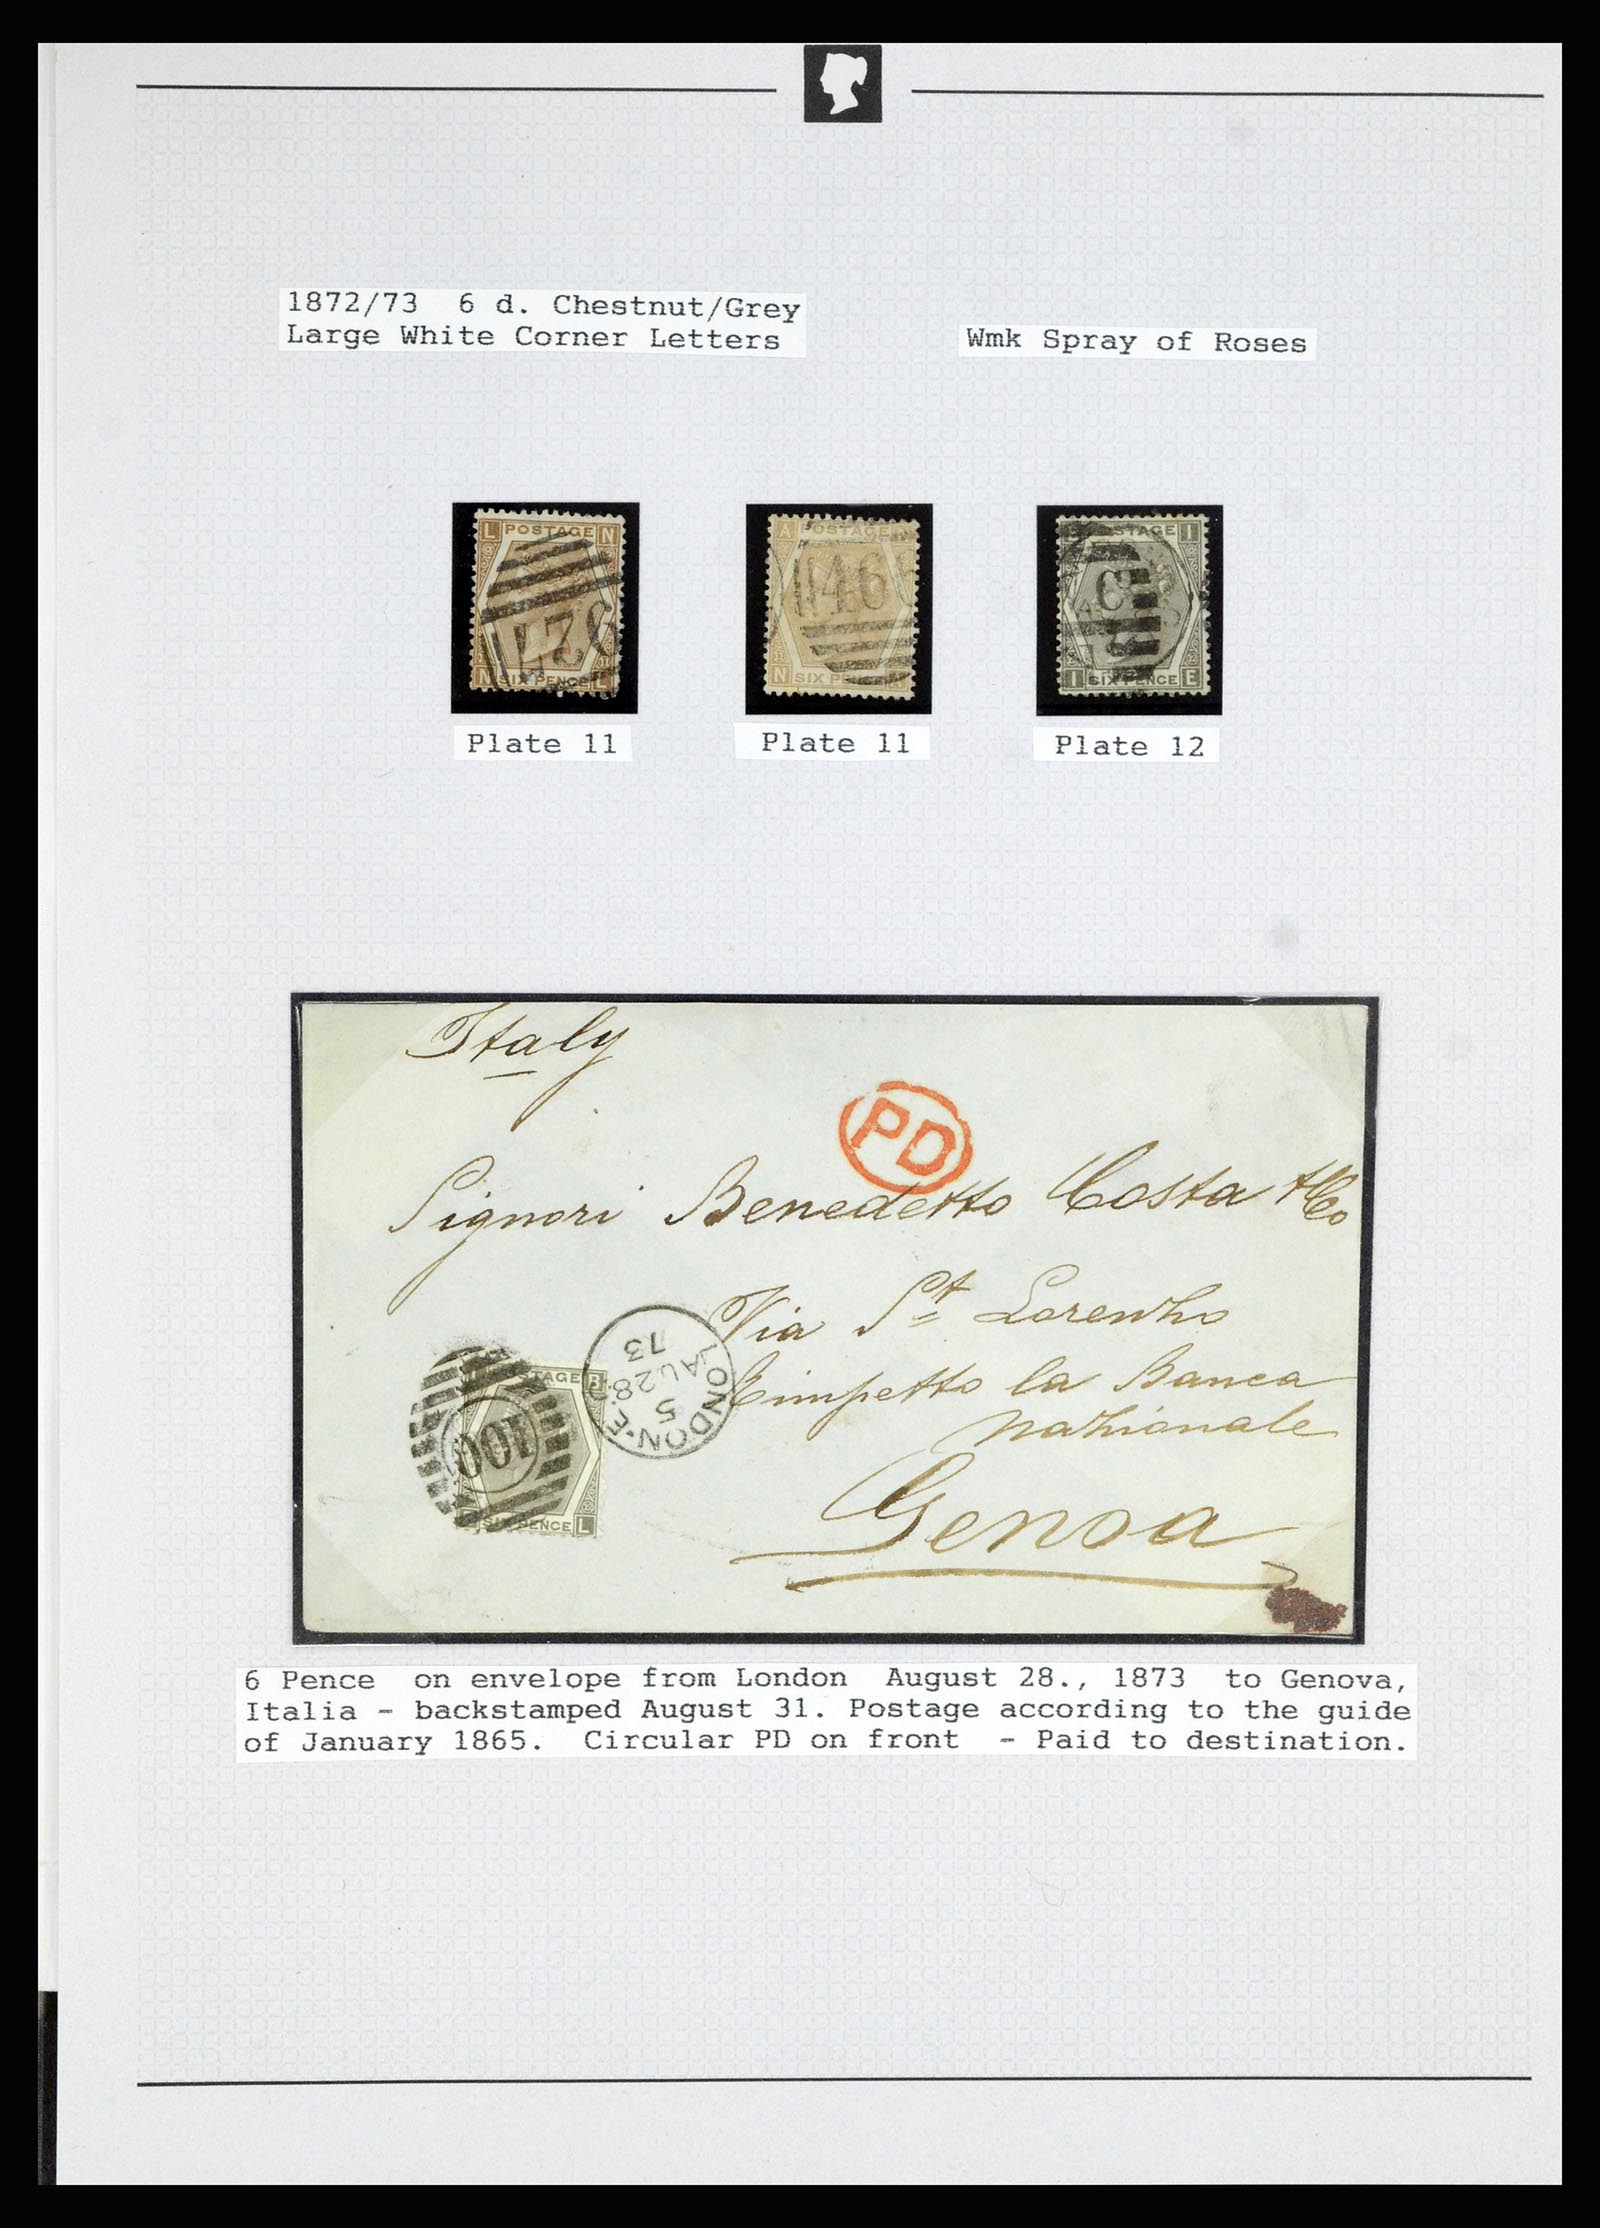 1872/73 6 d. Chestnut/Grey
Large White Corner Letters
Wmk Spray of Roses
L POSTAGE N
327
N SIX PENCE L
A POSTAGE N
466
N SIX PE A
STAGE I
I SIX PENCE E
Plate 11
Plate 11
Plate 12
Italy
PD
Signori Benedetto Costa & Co
Via St Lorenzho
Rimpetto la Banca
Nazhionale
Genoa
LONDON·E.C
5
AU 28
73
STAGE B
100
SIX PENCE L
6 Pence on envelope from London August 28., 1873 to Genova,
Italia - backstamped August 31. Postage according to the guide
of January 1865. Circular PD on front - Paid to destination.